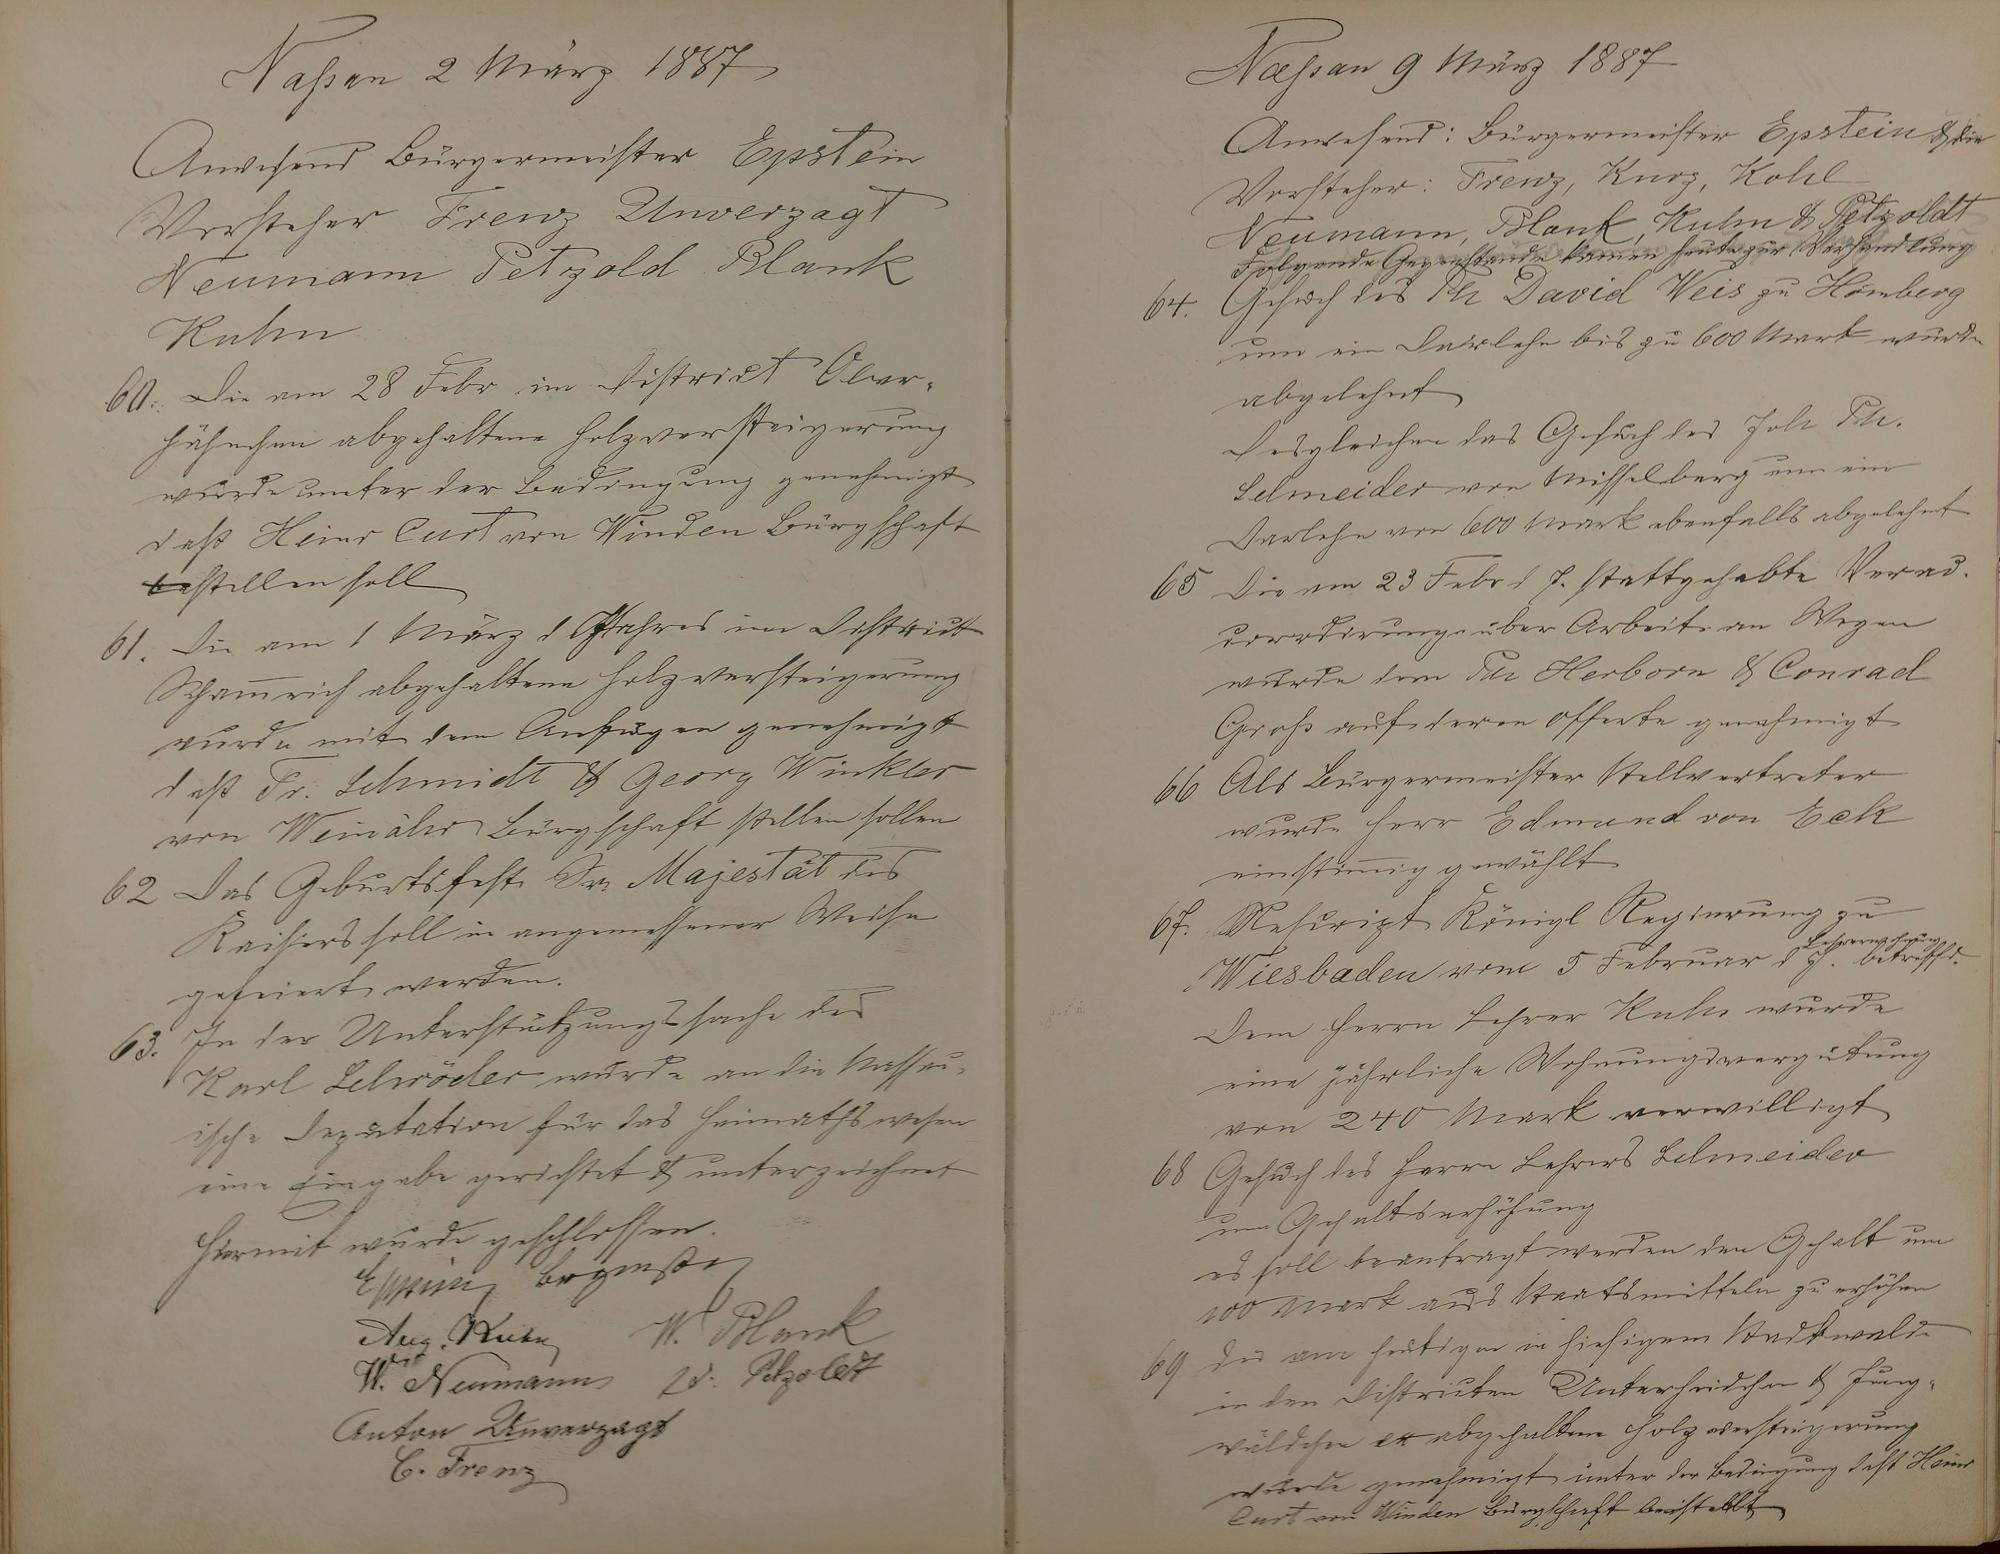 Naßau 2 März 1887
Anwesend Bürgermeister Epstein
Vorsteher Frenz Unverzagt
Neumann Petzold Blank
Kuhn
60. Die am 28 Febr im District Ober-
hähnchen abgehaltene Holzversteigerung
wurde unter der Bedingung genehmigt
daß Heinr Curt von Winden Bürgschaft
stellen soll
61. Die am 1 März d Jahres im District
abgehaltene Holzversteigerung
wurde mit dem Anfügen genehmigt
daß Fr. Schmidt & Georg Winkler
von Weinähr Bürgschaft stellen sollen
62 Das Geburtsfest Sr. Majestät des
Kaisers soll in angemessener Weise
gefeiert werden.
63. In der Unterstützungssache des
Karl Schröder wurde an die Nassau-
ische Deputation für das Heimathswesen
eine Eingabe gerichtet & unterzeichnet
Hiermit wurde geschlossen.
Epstein Bürgermstr
Aug. Kuhn W. Blank
W. Neumann Petzoldt
Anton Unverzagt
C. Frenz
Naßau 9 März 1887
Anwesend: Bürgermeister Epstein & die
Vorsteher: Frenz, Kurz, Kohl
Neumann, Blank, Kuhn & Petzoldt
Folgende Gegenstände kamen heute zur Verhandlung
64. Gesuch des Ph David Weis zu Hömberg
um ein Darlehn bis zu 600 Mark wurde
abgelehnt
Desgleichen das Gesuch des Joh Ph.
Schneider von Misselberg um ein
Darlehn von 600 Mark ebenfalls abgelehnt
65 Die am 23 Febr d J. stattgehabte Verac-
cordirung über Arbeiten an Wegen
wurde dem Ph Herborn & Conrad
Groß auf deren Offerte genehmigt
66 Als Bürgermeister Stellvertreter
wurde Herr Edmund von Eck
einstimig gewählt
67. Rescript Königl Regierung zu
Wiesbaden vom 5 Februar d J. Lehrerwohnung betreffd.
Dem Herrn Lehrer Kuhn wurde
eine jährliche Wohnungsvergütung
von 240 Mark verwilligt
68 Gesuch des Herrn Lehrers Schneider
um Gehaltserhöhung
es soll beantragt werden den Gehalt um
100 Mark aus Staatsmitteln zu erhöhen
69 Die am heutigen in hiesigem Stadtwalde
in den Districten & Jung-
wäldchen abgehaltene Holzversteigerung
wurde genehmigt unter der Bedingung daß Heinr
Curt von Winden Bürgschaft bestellt